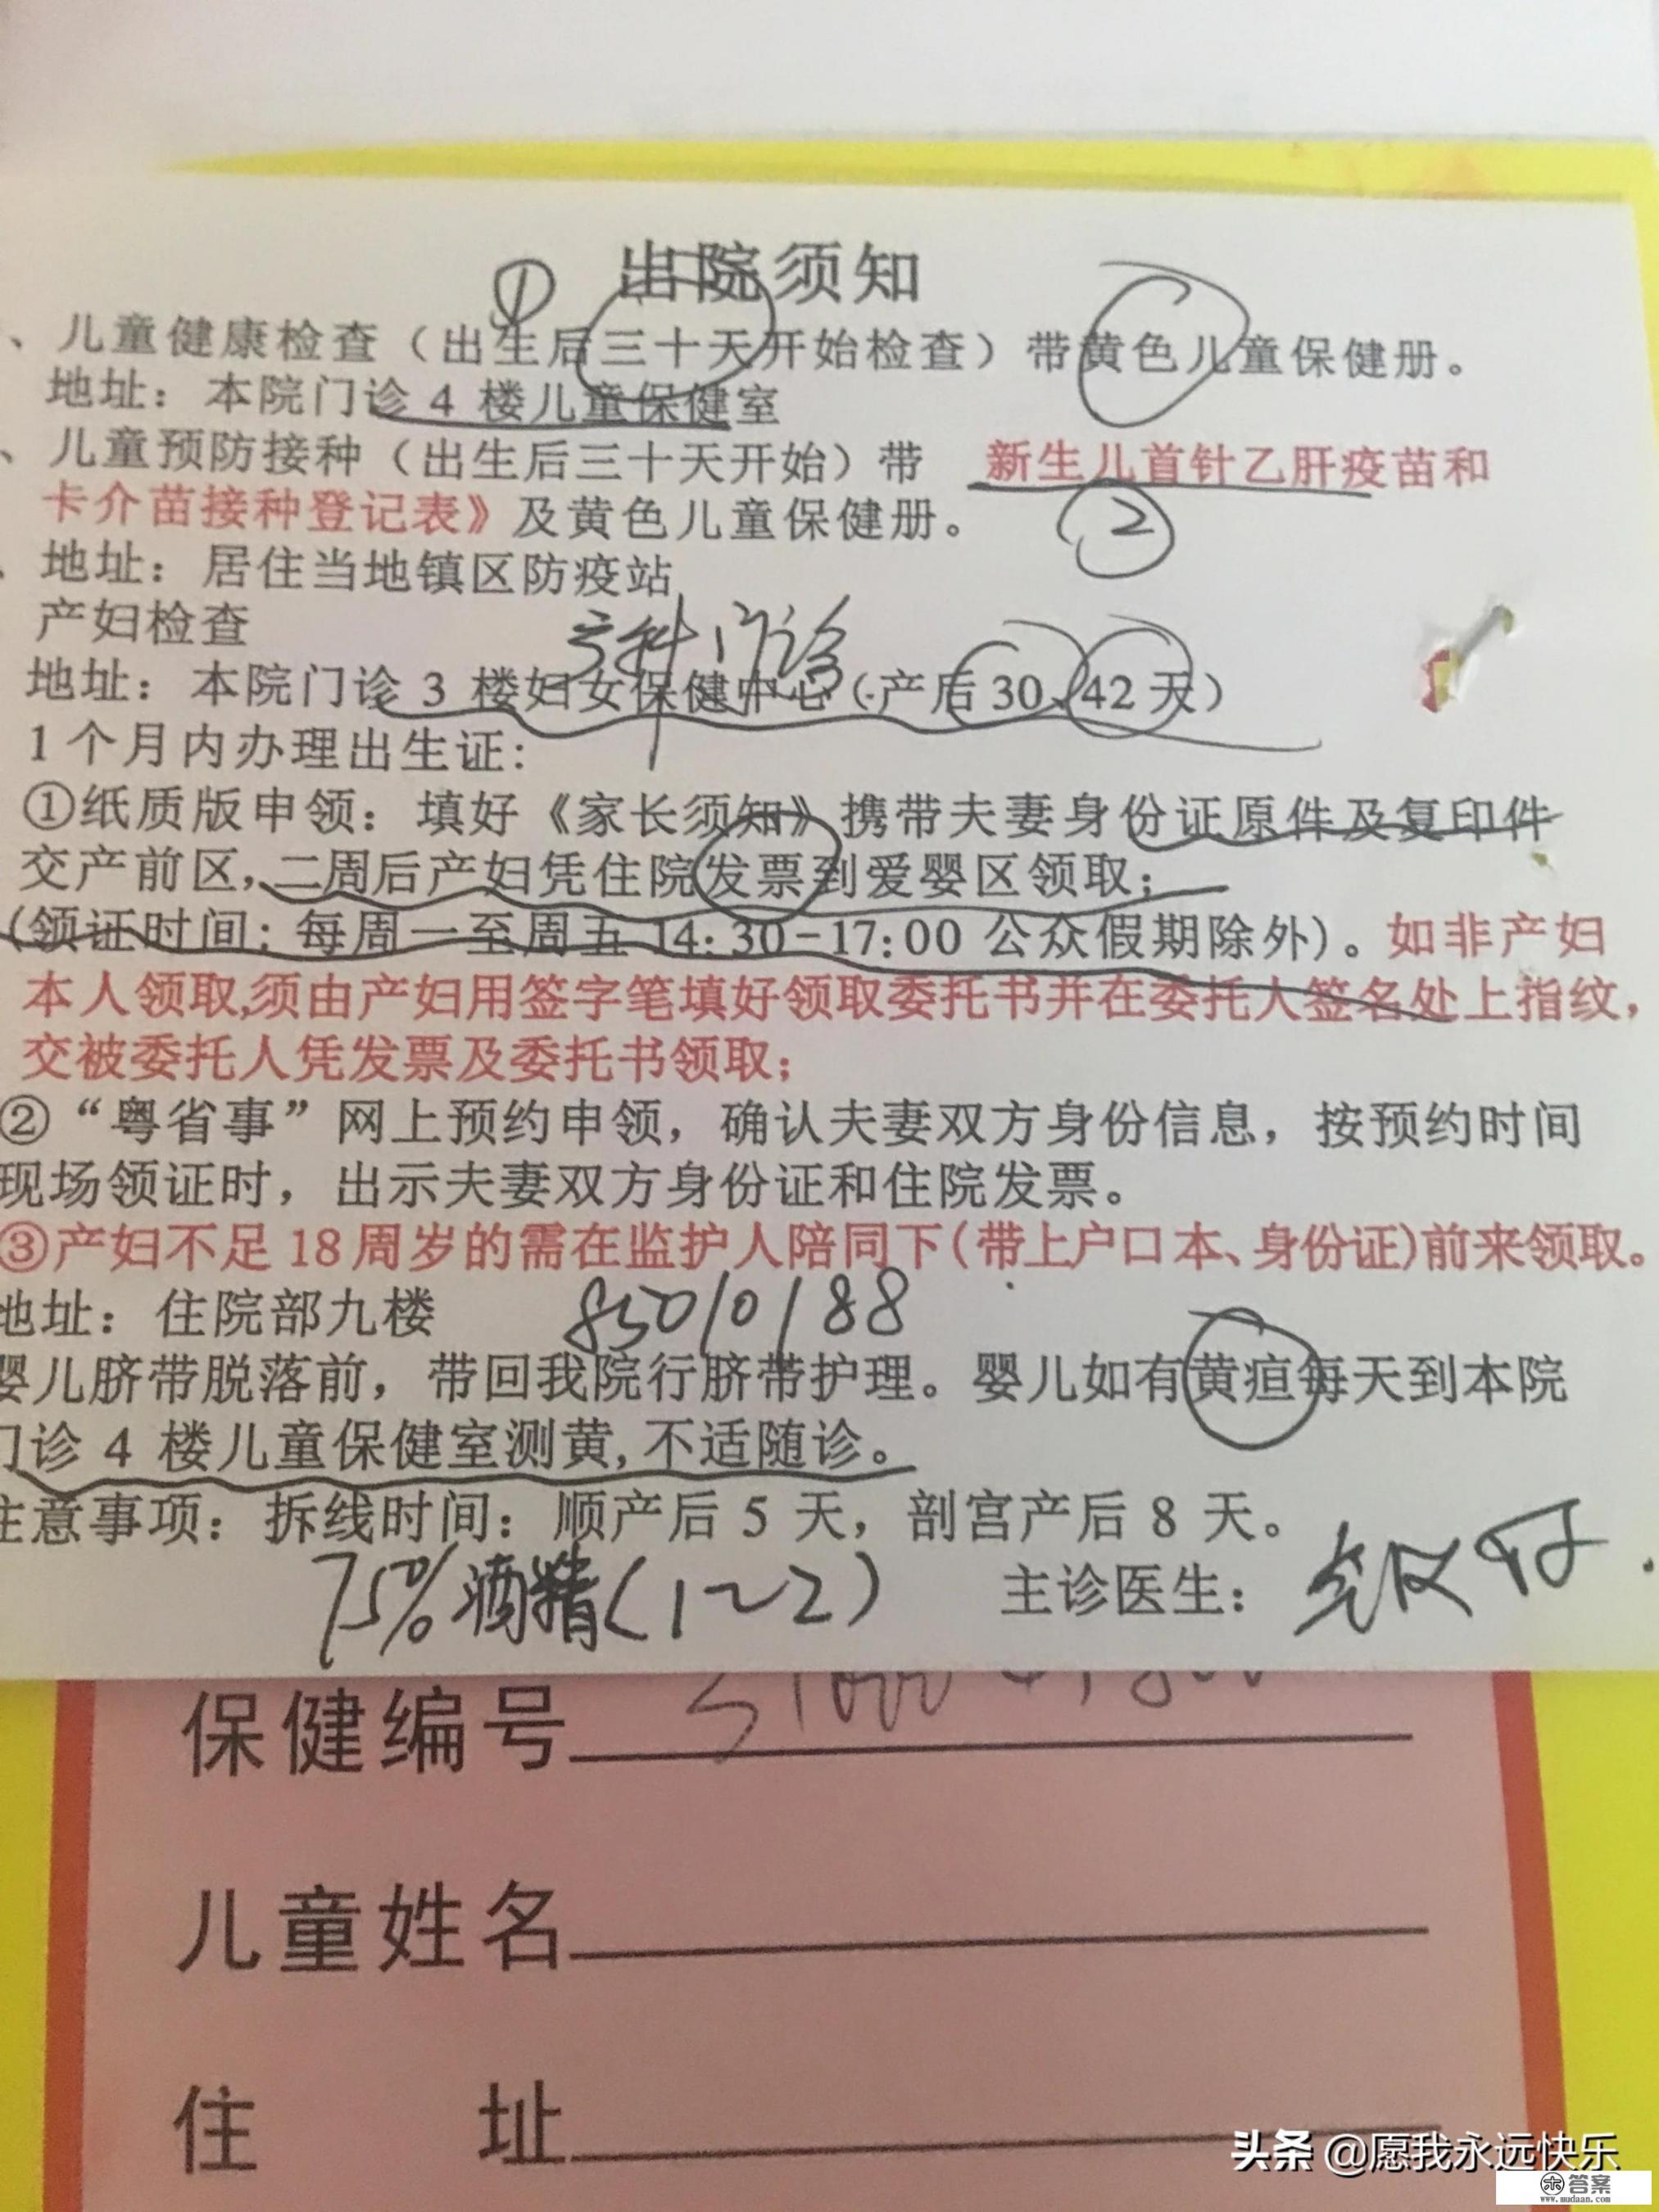 出院须知
①
、儿童健康检查（出生后三十天开始检查）带黄色儿童保健册。
地址：本院门诊 4 楼儿童保健室
、儿童预防接种（出生后三十天开始）带 新生儿首针乙肝疫苗和
卡介苗接种登记表》及黄色儿童保健册。
②
地址：居住当地镇区防疫站
产妇检查
产科门诊
地址：本院门诊 3 楼妇女保健中心（产后 30、42 天）
1 个月内办理出生证：
①纸质版申领：填好《家长须知》携带夫妻身份证原件及复印件
交产前区，二周后产妇凭住院发票到爱婴区领取；
(领证时间：每周一至周五 14：30-17：00 公众假期除外)。如非产妇
本人领取,须由产妇用签字笔填好领取委托书并在委托人签名处上指纹，
交被委托人凭发票及委托书领取；
②“粤省事”网上预约申领，确认夫妻双方身份信息，按预约时间
现场领证时，出示夫妻双方身份证和住院发票。
③产妇不足 18 周岁的需在监护人陪同下(带上户口本、身份证)前来领取。
地址：住院部九楼 85010188
婴儿脐带脱落前，带回我院行脐带护理。婴儿如有黄疸每天到本院
门诊 4 楼儿童保健室测黄,不适随诊。
注意事项：拆线时间：顺产后 5 天，剖宫产后 8 天。
75%酒精(1~2) 主诊医生：
保健编号
儿童姓名
住 址
头条 @愿我永远快乐
答案
www.mudaan.com